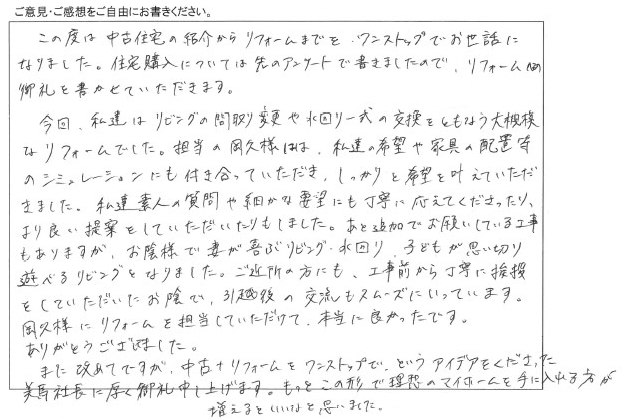 ご意見・ご感想をご自由にお書きください。
この度は中古住宅の紹介からリフォームまでを、ワンストップでお世話に
なりました。住宅購入については先のアンケートで書きましたので、リフォームの
御礼を書かせていただきます。
今回、私達はリビングの間取り変更や水回り一式の交換をともなう大規模
なリフォームでした。担当の岡久様は、私達の希望や家具の配置等
のシミュレーションにも付き合っていただき、しっかりと希望を叶えていただ
きました。私達素人の質問や細かな要望にも丁寧に応えてくださったり、
より良い提案をしていただいたりもしました。あと追加でお願いしている工事
もありますが、お陰様で妻が喜ぶリビング・水回り、子どもが思い切り
遊べるリビングとなりました。ご近所の方にも、工事前から丁寧に挨拶
をしていただいたお陰で、引越後の交流もスムーズにいっています。
岡久様にリフォームを担当していただけて、本当に良かったです。
ありがとうございました。
また改めてですが、中古+リフォームをワンストップで、というアイデアをくださった
美馬社長に厚く御礼申し上げます。もっとこの形で理想のマイホームを手に入れる方が
増えるといいなと思いました。